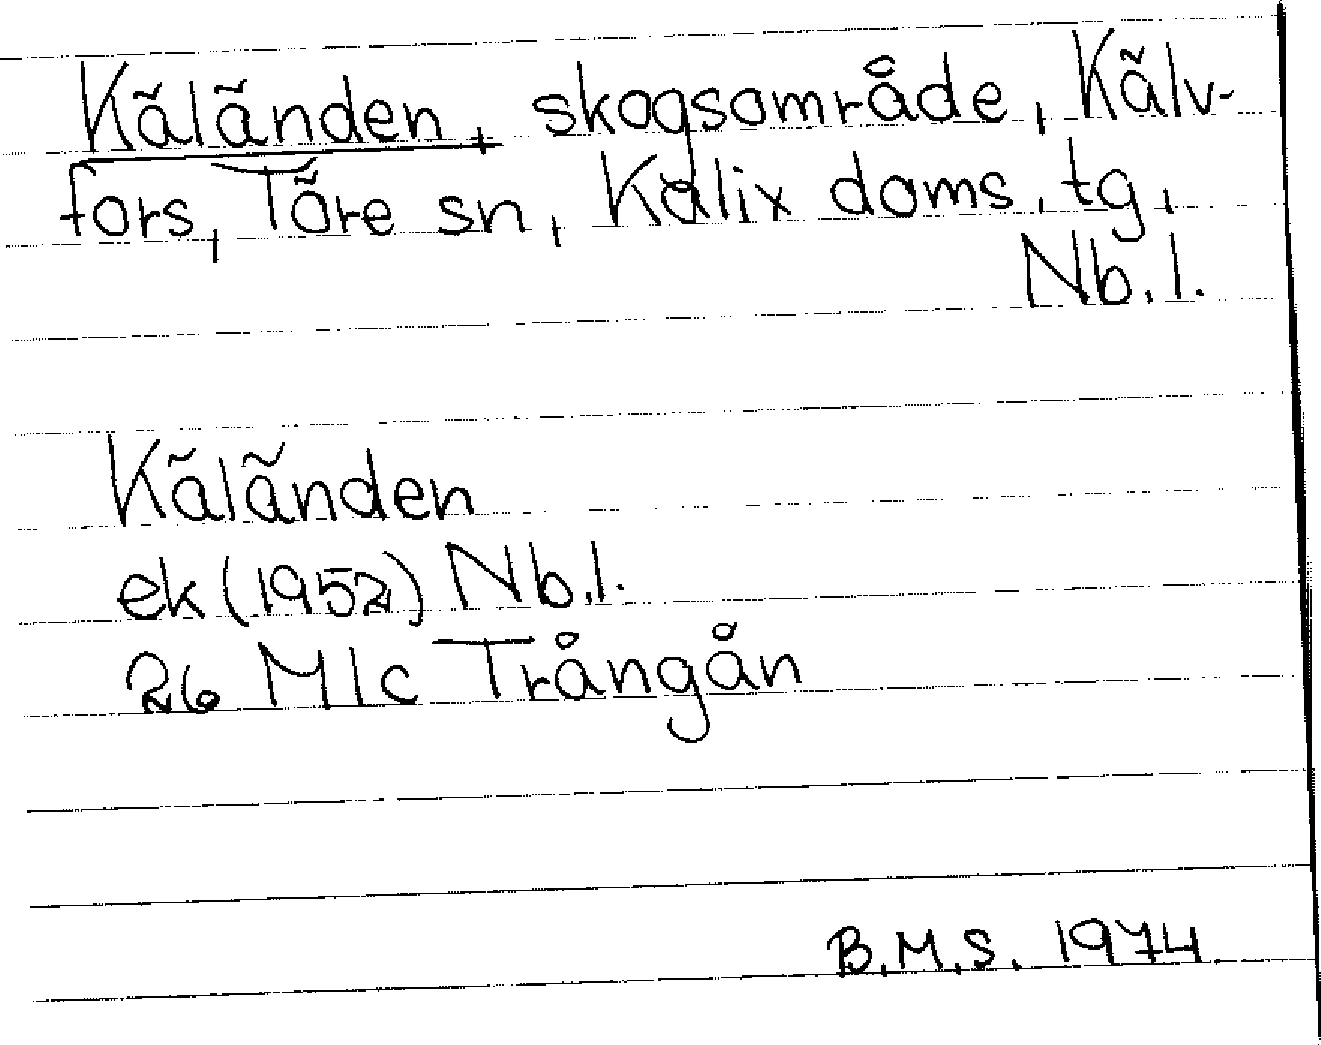 Käländen, skogsområde, Kälv-
fors, Töre sn, Kalix doms. tg,
Nb. l.
Käländen
ek (1952) Nb.l.
26 M 1c Trångån
B.M.S. 1974